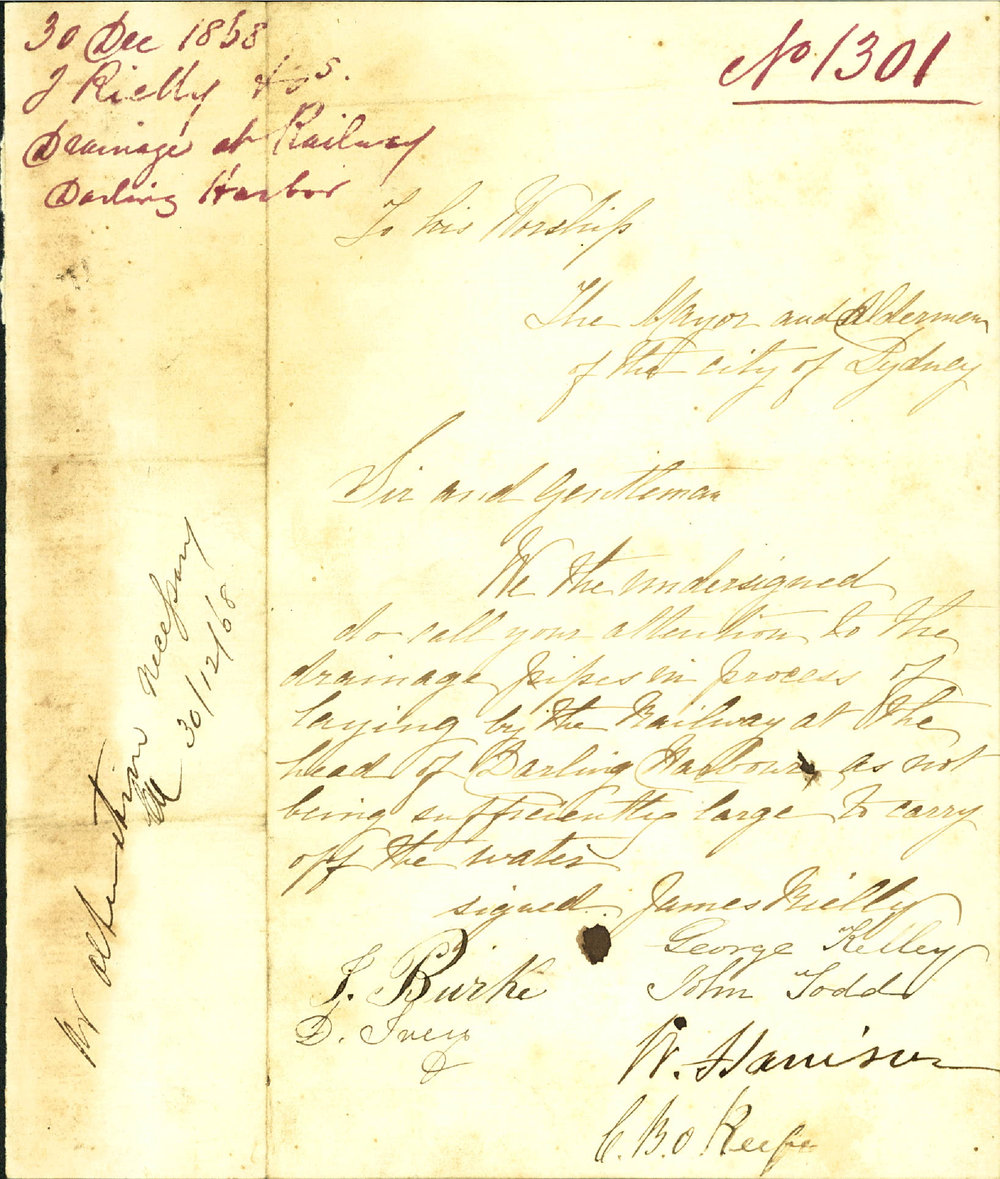 30 Dec 1868
J Rielly & Ors.
Drainage at Railway
Darling Harbor
No 1301
To his Worship
The Mayor and Aldermen
of the city of Sydney
Sir and Gentleman
We the undersigned
do call your attention to the
drainage pipes in process of
laying by the Railway at the
head of Darling Harbour, as not
being sufficiently large to carry
off the water
signed. James Rielly
George Kelley
J. Burke
John Todd
D. Ivery
W. Harrison
C. B. O Keefe
No alteration necessary
30/12/68